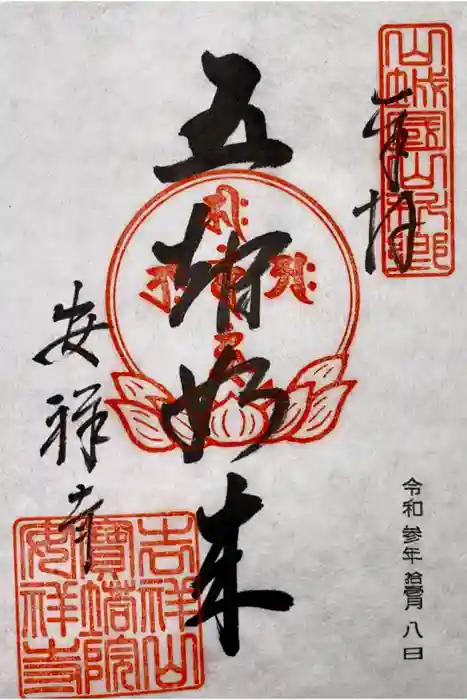 山城國山科郷
奉拝
五智如来
安祥寺
吉祥山
寶塔院
安祥寺
令和 參年 拾壹月 八日